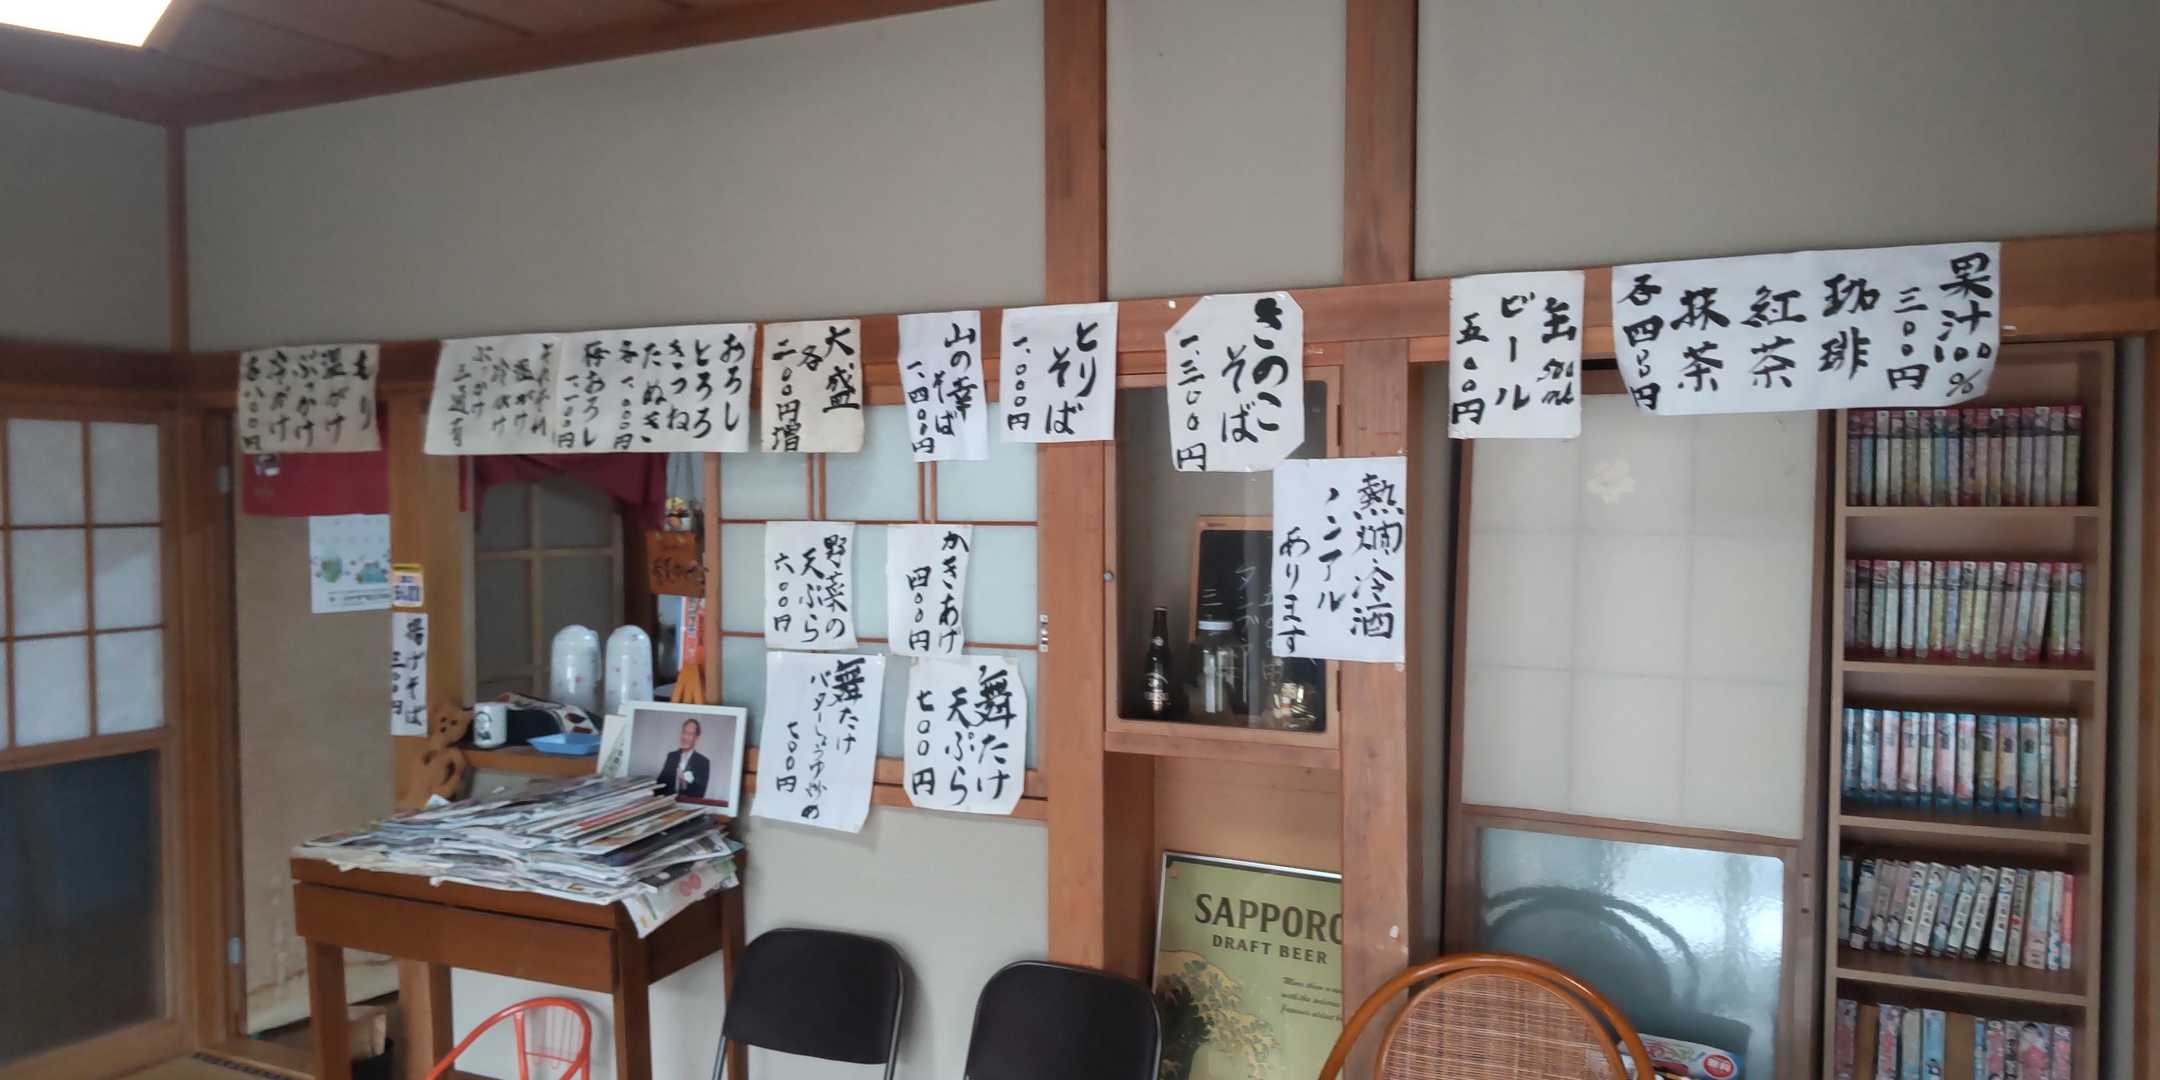 もり
温かけ
ぶっかけ
冷かけ
各八〇〇円
おろし
とろろ
きつね
たぬき
各一、〇〇〇円
梅おろし
一、一〇〇円
それぞれ
温かけ
冷かけ
ぶっかけ
三通有
大盛
各
二〇〇円増
山の幸
そば
一、四〇〇円
とり
そば
一、〇〇〇円
きのこ
そば
一、三〇〇円
缶500ml
ビール
五〇〇円
果汁100%
三〇〇円
珈琲
紅茶
抹茶
各四〇〇円
熱燗冷酒
ノンアル
あります
揚げそば
三〇〇円
野菜の
天ぷら
六〇〇円
かきあげ
四〇〇円
舞たけ
バターしょうゆ炒め
七〇〇円
舞たけ
天ぷら
七〇〇円
SAPPORO
DRAFT BEER